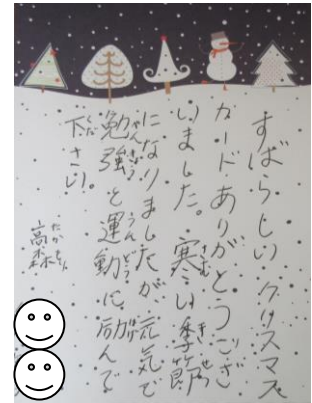 すばらしい クリスマス
カードありがとうござ
いました。寒い季節
になりましたが、元気で
勉強と運動に励んで
下さい。
高森